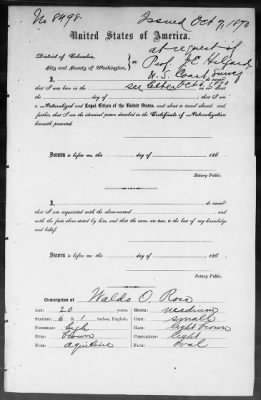 No 8498.
Issued Oct 7, 1870
United States of America.
at request of
District of Columbia,
City and County of Washington,
Prof. J E Hilgard
U. S. Coast Survey
I,
do swear
that I was born in the
see letter Oct 6, 1870
on or about
the day of ; that I am
a Naturalized and Legal Citizen of the United States, and about to travel abroad; and
further, that I am the identical person described in the Certificate of Naturalization
herewith presented.
Sworn to before me, this day of 186 .
Notary Public.
I, do swear
that I am acquainted with the above-named and
with the facts above stated by him, and that the same are true, to the best of my knowledge
and belief.
Sworn to before me, this day of 186 .
Notary Public.
Description of Waldo O. Ross
Age: 20 years. Mouth: medium
Stature: 6 1 inches, English. Chin: small
Forehead: high Hair: light brown
Eyes: brown Complexion: light
Nose: aquiline Face: oval